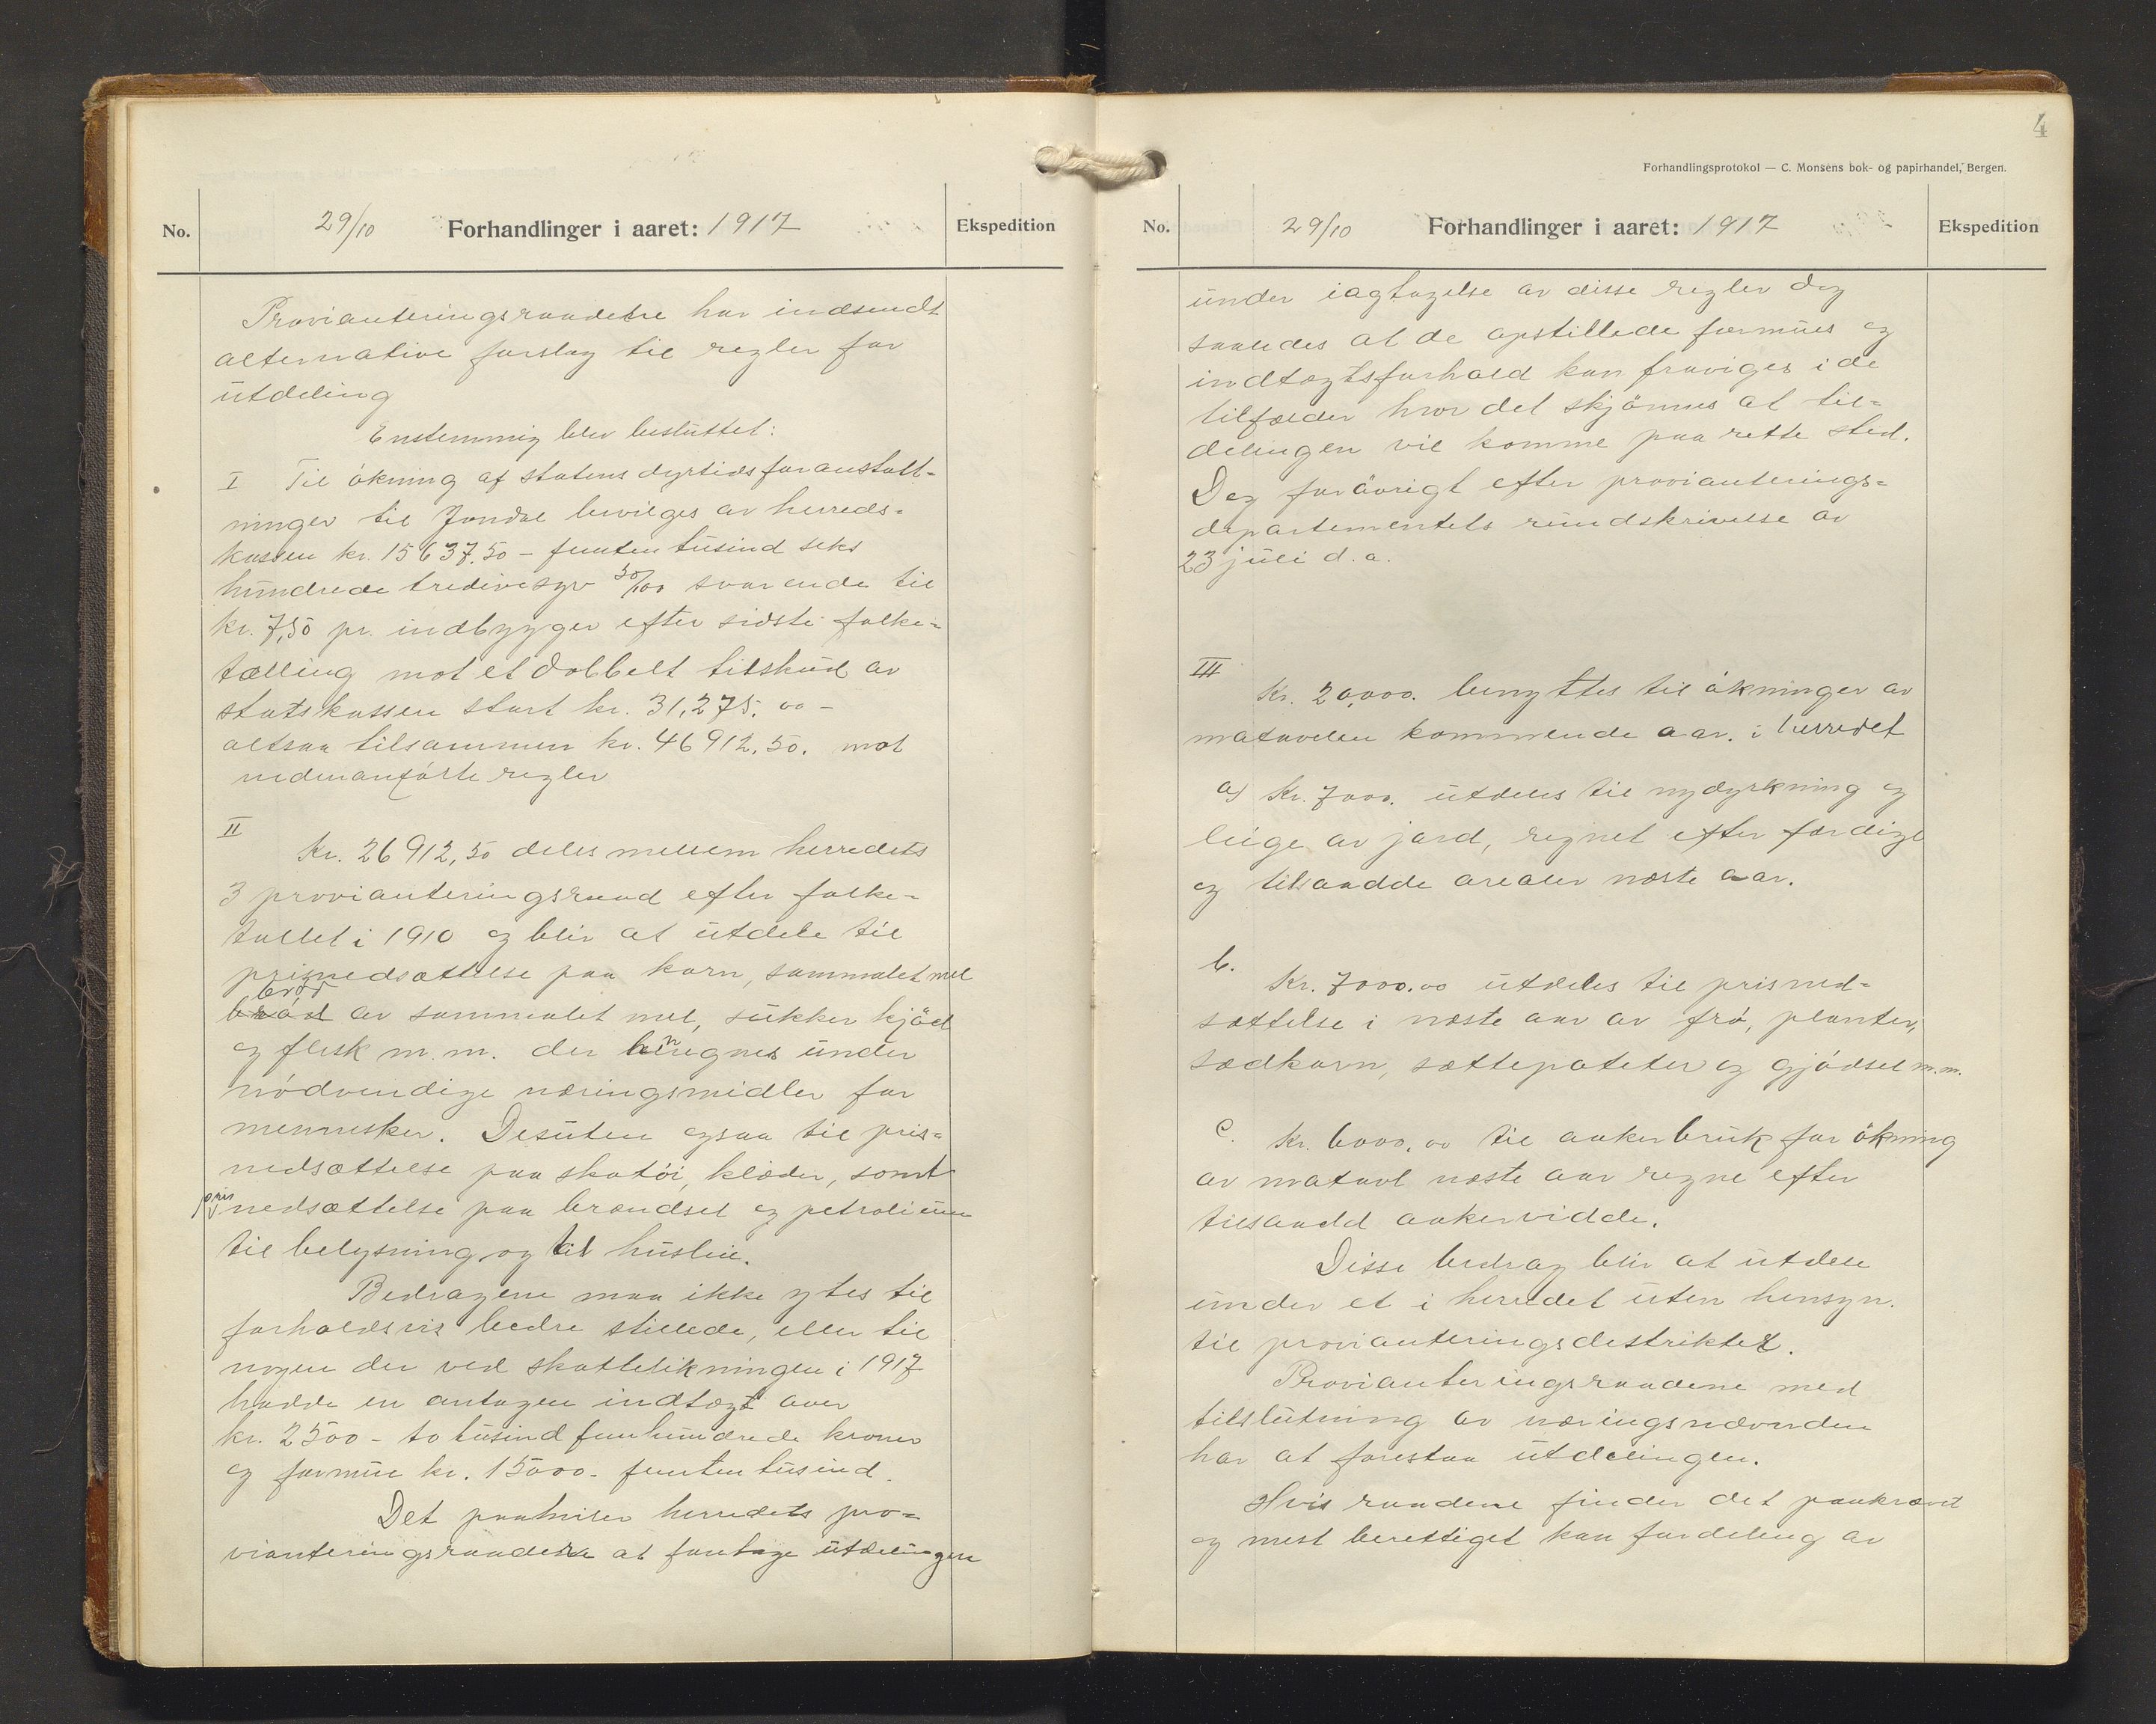 No.
29/10 Forhandlinger i aaret: 1917
Ekspedition
Provianteringsraadene har indsendt
alternative forslag til regler for
utdeling
Enstemmig blev besluttet:
I Til ökning af statens dyrtidsforanstalt-
ninger til Jondal bevilges av herreds-
kassen kr. 15637.50 - femten tusind seks
hundrede tredivesyv 50/100 svarende til
kr. 7,50 pr. indbygger efter sidste folke-
tælling mot et dobbelt tilskud av
statskassen stort kr. 31,275.00 -
altsaa tilsammen kr. 46912.50. mot
nedenanförte regler
II
Kr. 26912,50 deles mellem herredets
3 provianteringsraad efter folke-
tallet i 1910 og blir at utdele til
prisnedsættelse paa korn, sammalet mel
bröd
av sammalet mel, sukker kjöd
og flesk m.m. der henregnes under
nödvendige næringsmidler for
mennesker. Desuten ogsaa til pris-
nedsættelse paa skotöi, klæder, samt
prisnedsættelse paa brændsel og petrolium
til belysning og til huslie.
Bedragene maa ikke ytes til
forholdsvis bedre stillede, eller til
nogen der ved skattelikningen i 1917
hadde en antagen indtægt over
kr. 2500 - to tusind femhundrede kroner
og formue kr. 15000 - femten tusind.
Det paahviler herredets pro-
vianteringsraadene at foretage utdelingen
4
Forhandlingsprotokol — C. Monsens bok- og papirhandel, Bergen.
No.
29/10 Forhandlinger i aaret: 1917
Ekspedition
under iagtagelse av disse regler dog
saaledes at de opstillede formues og
indtægtsforhold kan fraviges i de
tilfælder hvor det skjönnes at til-
delingen vil komme paa rette sted.
Dog forövrigt efter provianterings-
departementets rundskrivelse av
23 juli d.a.
III
Kr. 20,000. benyttes til ökninger av
matavlen kommende aar. i herredet
a) Kr. 7000. utdeles til nydyrkning og
leige av jord, regnet efter færdige
og tilsaadde arealer næste aar.
b.
Kr. 7000.00 utdeles til prisned-
sættelse i næste aar av frö, planter,
sædkorn, sættepoteter og gjödsel m.m.
c. Kr. 6000.00 til aakerbruk for ökning
av matavl næste aar regne efter
tilsaadd aakervidde.
Disse bedrag blir at utdele
under et i herredet uten hensyn
til provianteringsdestriktet.
Provianteringsraadene med
tilslutning av næringsnævnden
har at forestaa utdelingen.
Hvis raadene finder det paakrævet
og mest berettiget kan fordeling av